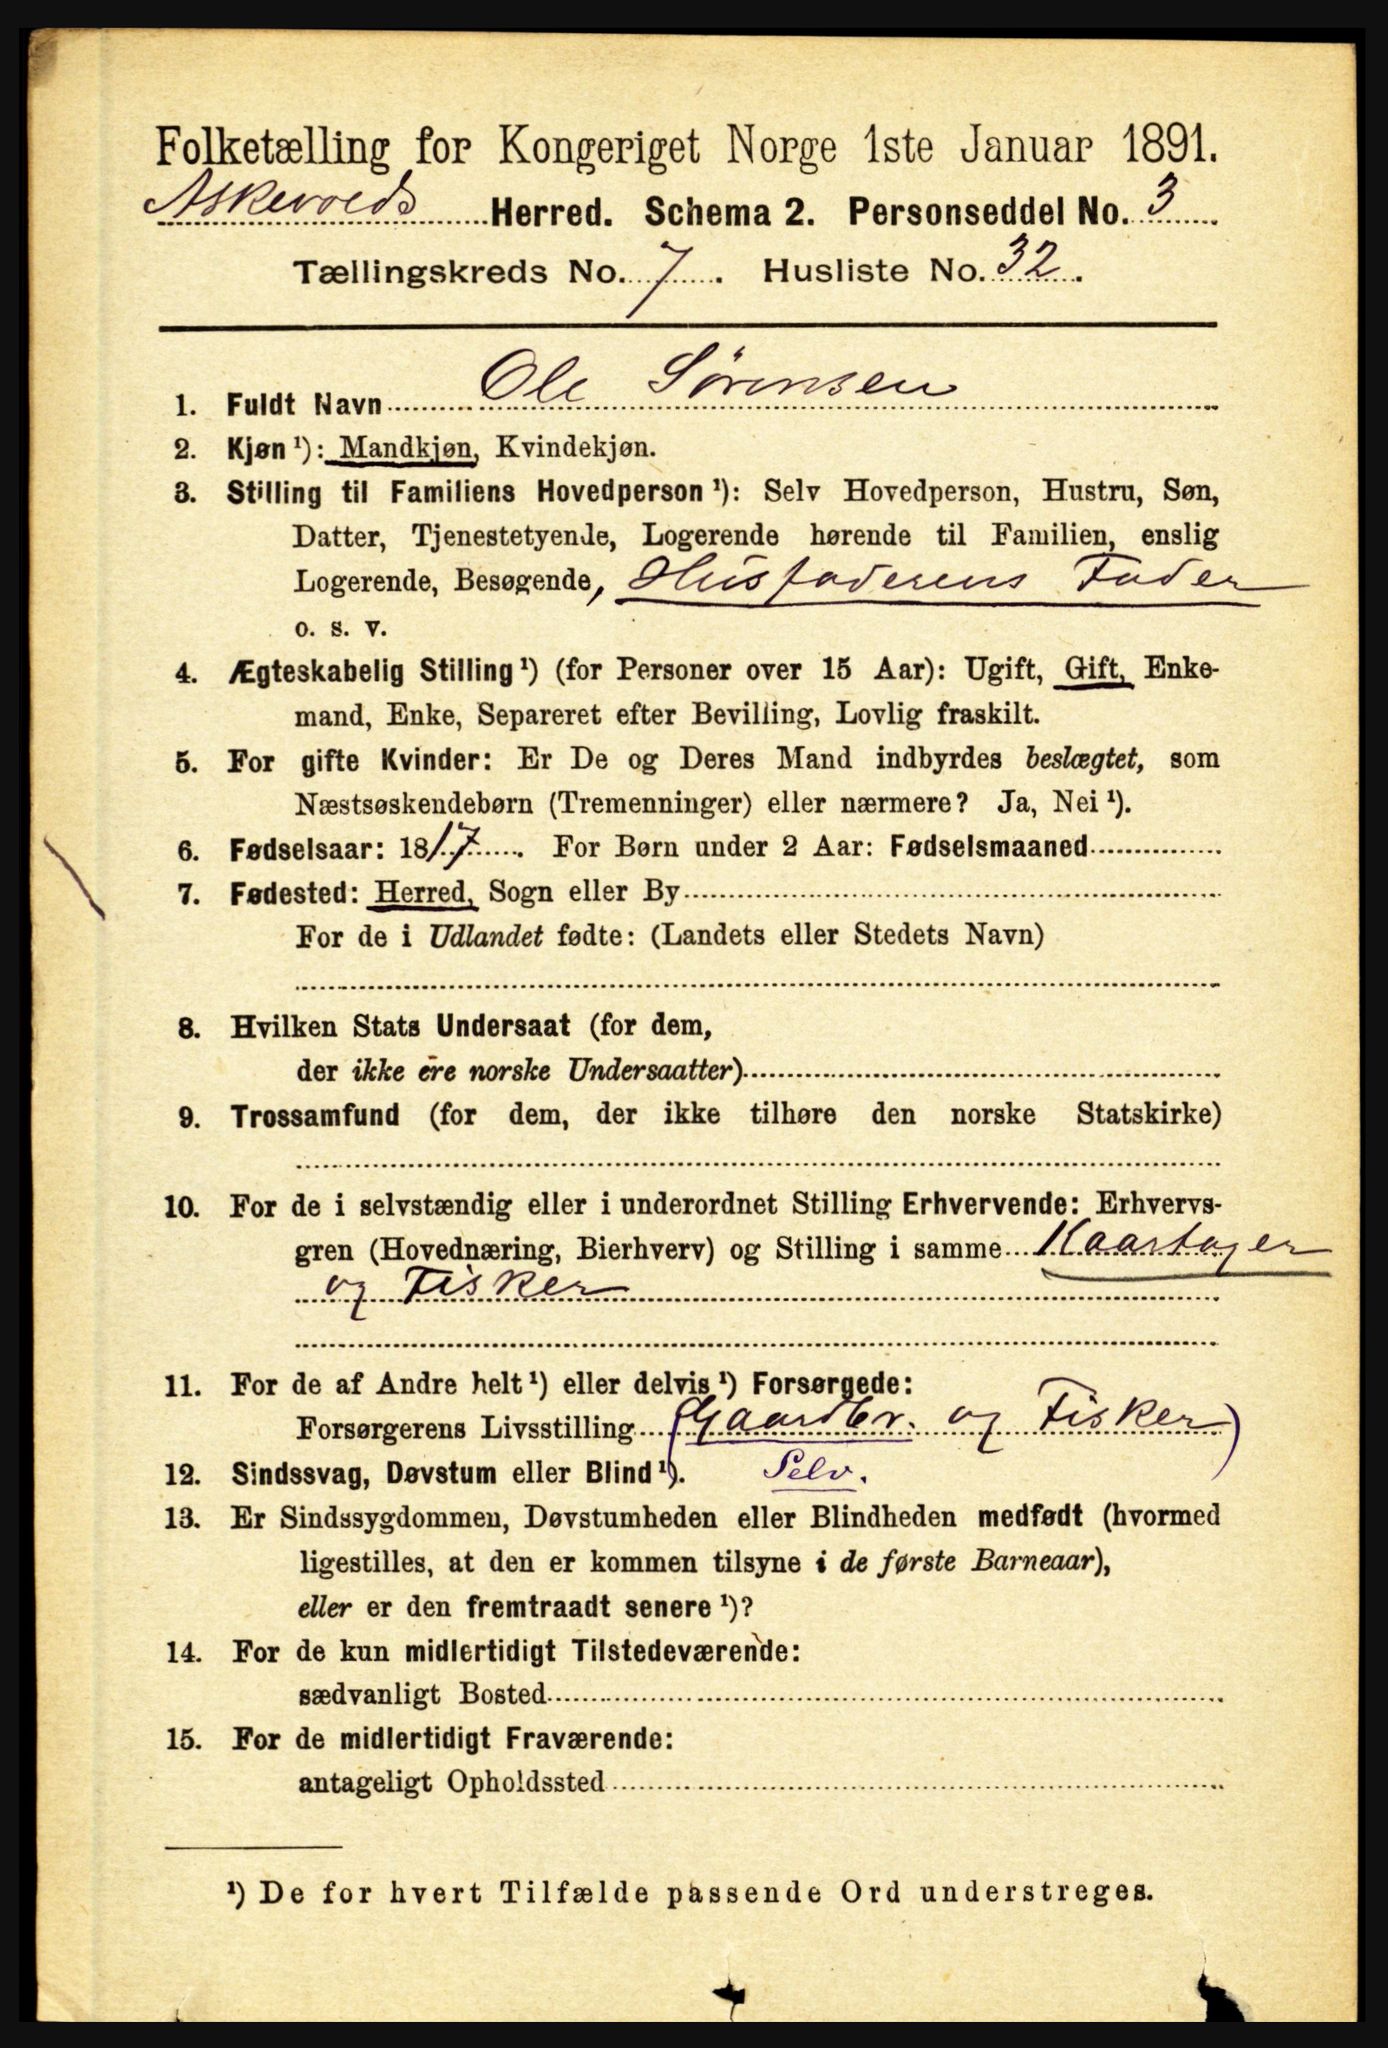 Folketælling for Kongeriget Norge 1ste Januar 1891.
Askevolds Herred. Schema 2. Personseddel No. 3
Tællingskreds No. 7. Husliste No. 32.
1. Fuldt Navn Ole Sørensen
2. Kjøn ¹): Mandkjøn, Kvindekjøn.
3. Stilling til Familiens Hovedperson ¹): Selv Hovedperson, Hustru, Søn,
Datter, Tjenestetyende, Logerende hørende til Familien, enslig
Logerende, Besøgende, Husfaderens Fader
o. s. v.
4. Ægteskabelig Stilling ¹) (for Personer over 15 Aar): Ugift, Gift, Enke-
mand, Enke, Separeret efter Bevilling, Lovlig fraskilt.
5. For gifte Kvinder: Er De og Deres Mand indbyrdes beslægtet, som
Næstsøskendebørn (Tremenninger) eller nærmere? Ja, Nei ¹).
6. Fødselsaar: 1817. For Børn under 2 Aar: Fødselsmaaned
7. Fødested: Herred, Sogn eller By
For de i Udlandet fødte: (Landets eller Stedets Navn)
8. Hvilken Stats Undersaat (for dem,
der ikke ere norske Undersaatter)
9. Trossamfund (for dem, der ikke tilhøre den norske Statskirke)
10. For de i selvstændig eller i underordnet Stilling Erhvervende: Erhvervs-
gren (Hovednæring, Bierhverv) og Stilling i samme Kaartager
og Fisker
11. For de af Andre helt ¹) eller delvis ¹) Forsørgede:
Forsørgerens Livsstilling (Gaardbr. og Fisker)
12. Sindssvag, Døvstum eller Blind ¹). Selv.
13. Er Sindssygdommen, Døvstumheden eller Blindheden medfødt (hvormed
ligestilles, at den er kommen tilsyne i de første Barneaar),
eller er den fremtraadt senere ¹)?
14. For de kun midlertidigt Tilstedeværende:
sædvanligt Bosted
15. For de midlertidigt Fraværende:
antageligt Opholdssted
¹) De for hvert Tilfælde passende Ord understreges.